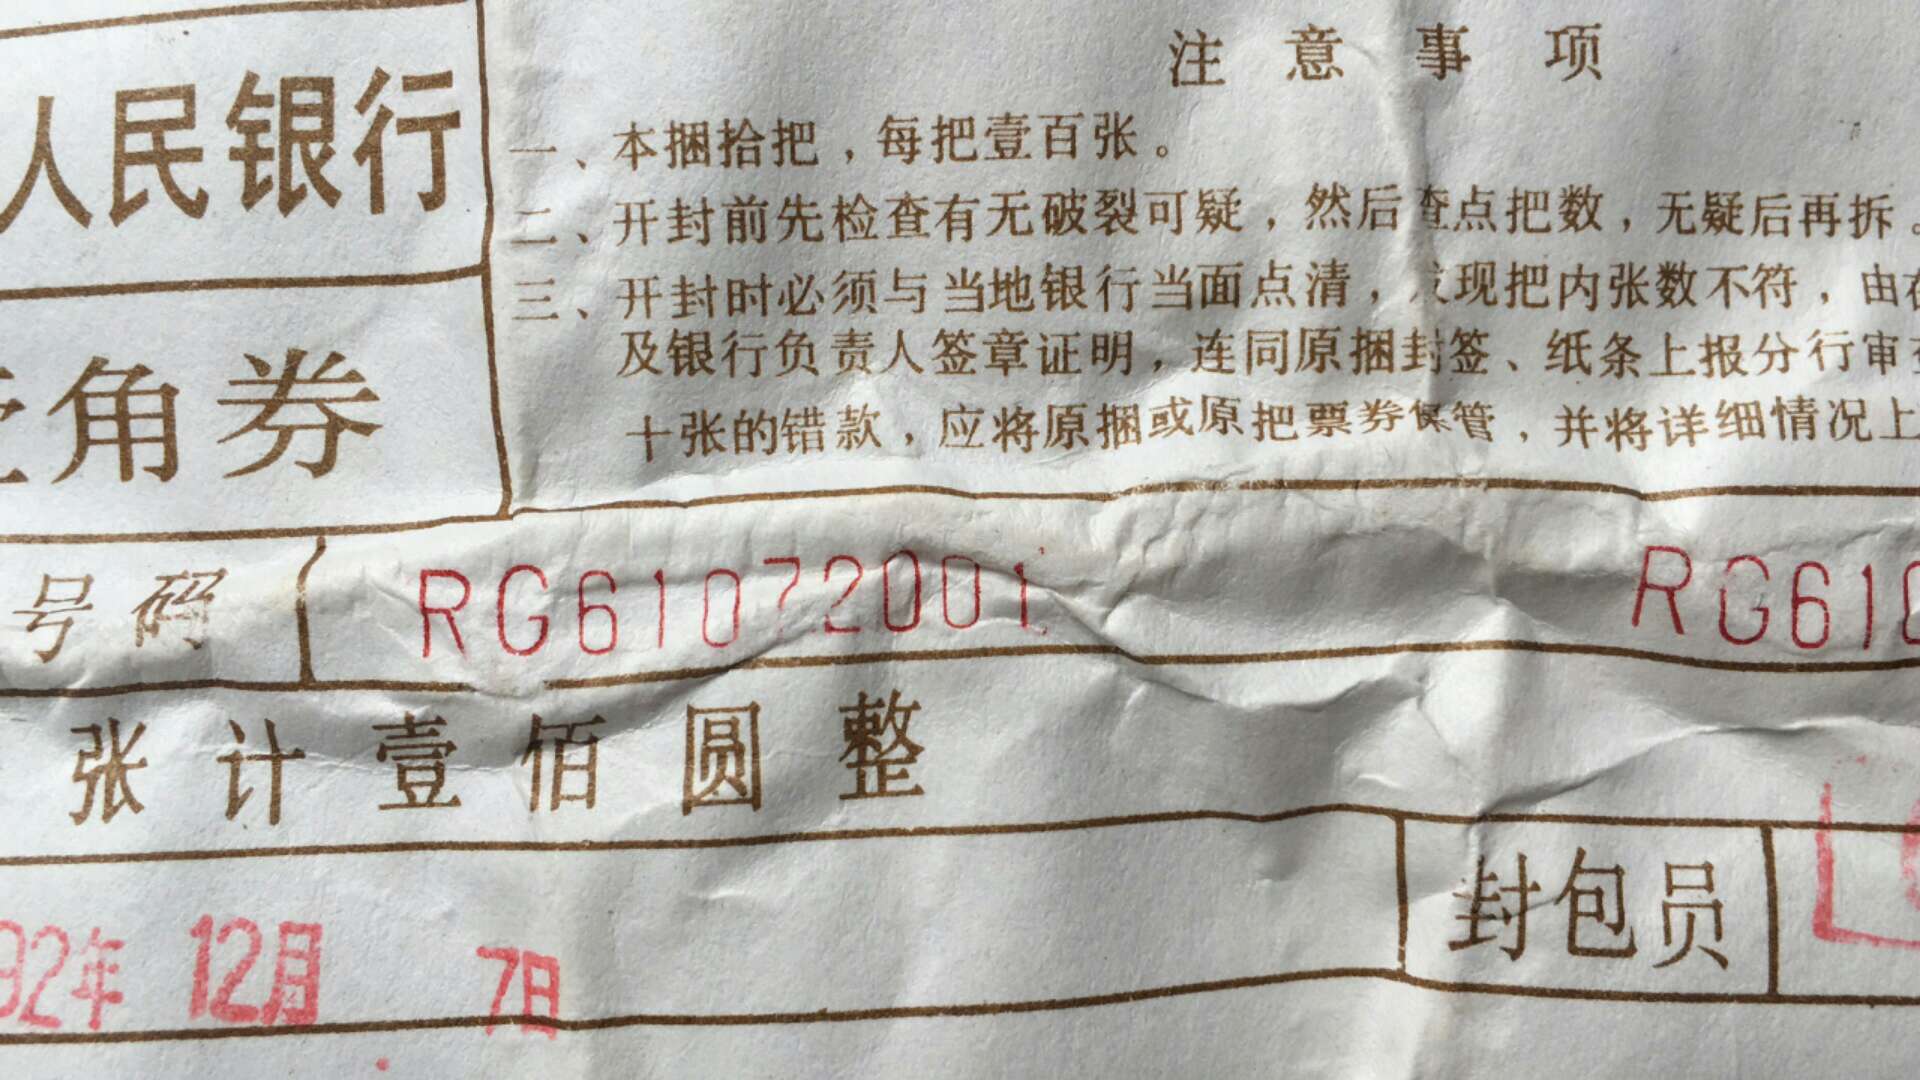 人民银行
角券
注意事项
一、本捆拾把，每把壹百张。
二、开封前先检查有无破裂可疑，然后查点把数，无疑后再拆。
三、开封时必须与当地银行当面点清，发现把内张数不符，由在
及银行负责人签章证明，连同原捆封签、纸条上报分行审查
十张的错款，应将原捆或原把票券保管，并将详细情况上
号码 RG61072001 RG610
张计壹佰圆整
92年 12月 7日 封包员